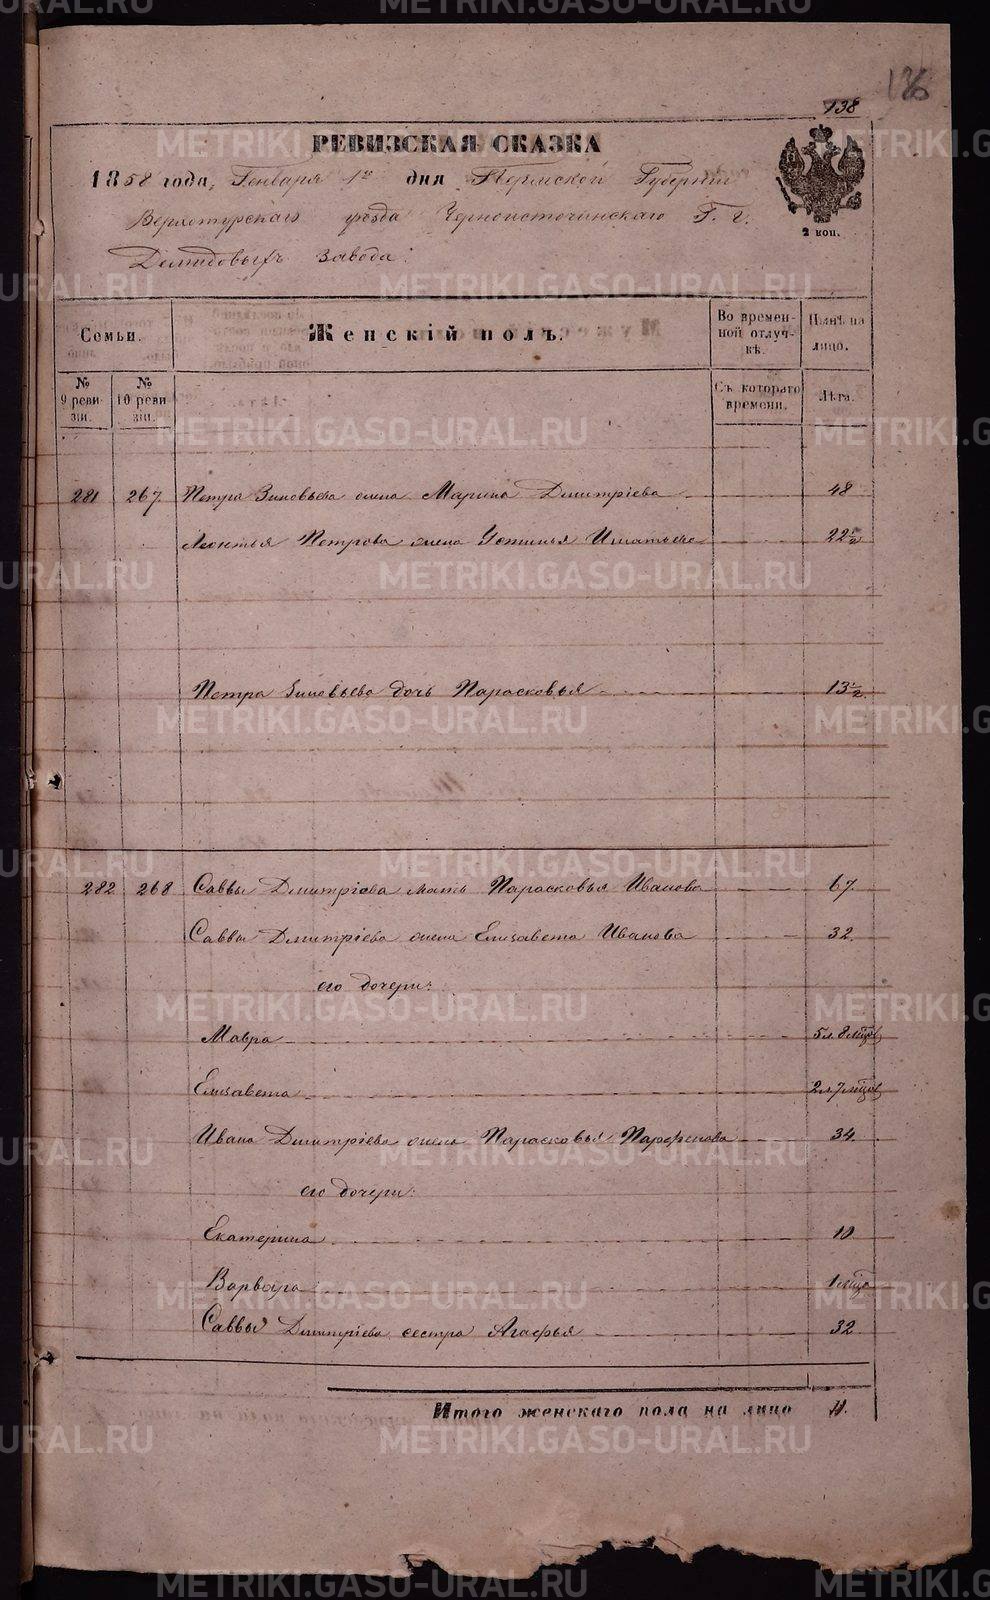 136
138
РЕВИЗСКАЯ СКАЗКА
1858 года, Генваря 1го дня Пермской Губернии
Верхотурскаго уезда Черноисточинскаго Г. г.
Демидовыхъ завода.
2 коп.
Семьи.
Женскій полъ.
Во времен-
ной отлуч-
кѣ.
Нынѣ на
лицо.
№
9 реви-
зіи.
№
10 реви
зіи.
Съ котораго
времени.
Лѣта.
281 267. Петра Зиновьева жена Марина Дмитріева 48
Леонтья Петрова жена Устинья Игнатьева 22½
Петра Зиновьева дочь Парасковья 13½
282 268 Саввы Дмитріева мать Парасковья Иванова 67.
Саввы Дмитріева жена Елизавета Иванова 32.
его дочери:
Мавра 5л. 8 мѣцовъ
Елизавета 2л. 7 мѣцовъ
Ивана Дмитріева жена Парасковья Парфенова 34.
его дочери:
Екатерина 10
Варвара 1 мѣца
Саввы Дмитріева сестра Агафья 32
Итого женскаго пола на лицо 11.
METRIKI.GASO-URAL.RU